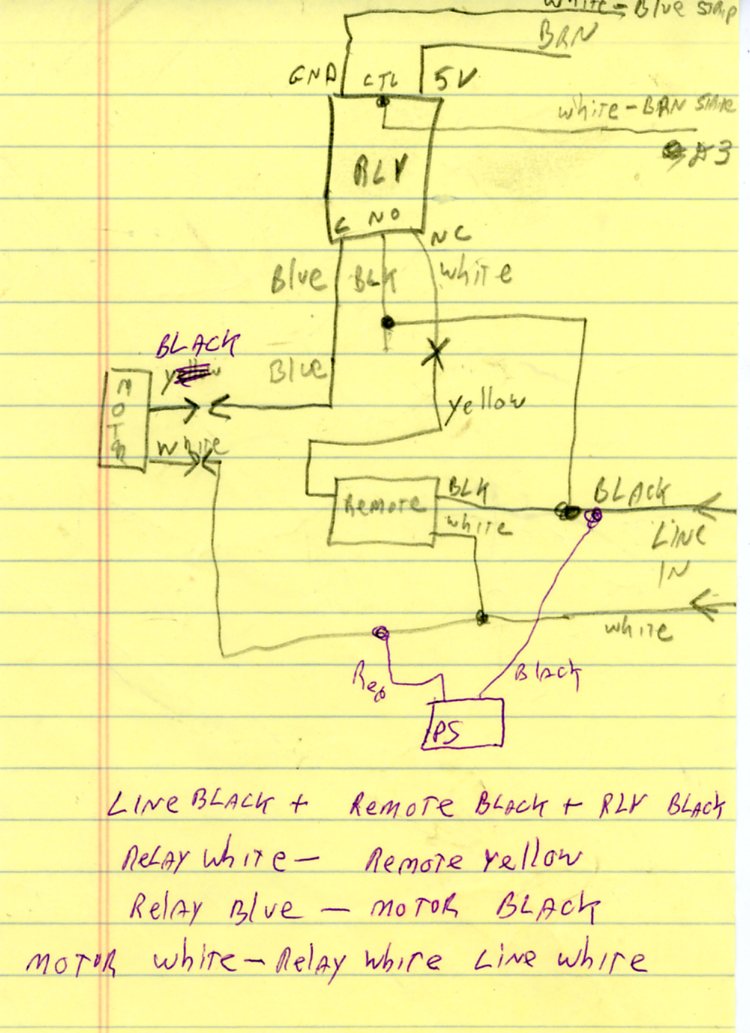 white - Blue strip
BRN
GND CTL 5V
white - BRN stripe
D3
RLY
C NO NC
Blue BLK white
BLACK
Blue
yellow
MOTR
white
yellow
Remote
BLK
white
BLACK
LINE
IN
white
Red
Black
PS
LINE BLACK + Remote BLACK + RLY BLACK
ReLAY white - Remote yellow
Relay Blue - MOTOR BLACK
MOTOR white - Relay white Line white